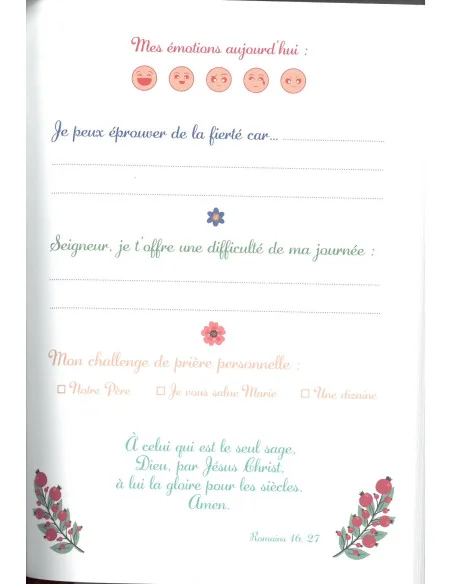 Mes émotions aujourd'hui :
Je peux éprouver de la fierté car...
Seigneur, je t'offre une difficulté de ma journée :
Mon challenge de prière personnelle :
Notre Père Je vous salue Marie Une dizaine
À celui qui est le seul sage,
Dieu, par Jésus Christ,
à lui la gloire pour les siècles.
Amen.
Romains 16, 27